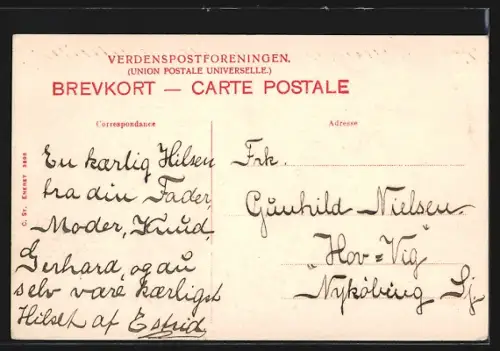 VERDENSPOSTFORENINGEN.
(UNION POSTALE UNIVERSELLE.)
BREVKORT — CARTE POSTALE
Correspondance
Adresse
En kærlig Hilsen
fra din Fader,
Moder, Knud,
Gerhard, og du
selv være kærligst
Hilset af Estrid.
Frk.
Gunhild Nielsen.
"Hov=Vig"
Nykøbing Sj.
C. St. EMERET